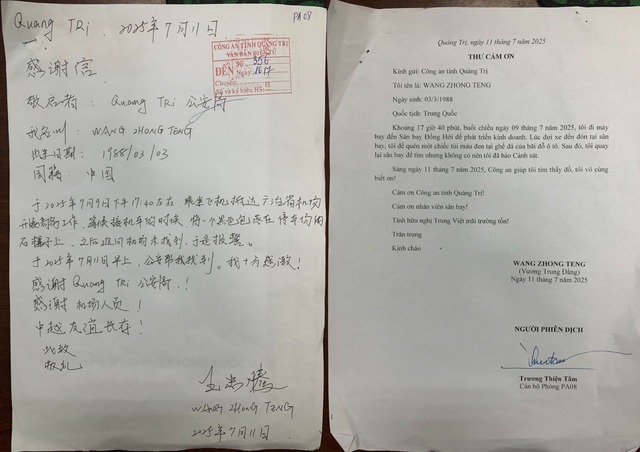 Quang TRi . 2025年7月11日
PA08
CÔNG AN TỈNH QUẢNG TRỊ
VĂN BẢN ĐIỆN TỬ
ĐẾN
Số
Ngày
16/7
Chuyển
Số và ký hiệu HS
感谢信
敬启者 : Quang TRi 公安局
我名叫 : WANG ZHONG TENG
出生日期 : 1988/03/03
国籍 : 中国
于2025年7月9日下午17:40左右 乘坐飞机抵达
开展商务工作,等候接机车的时候,将一个黑色包忘在停车场的
石椅子上,之后返回机场未找到,于是报警。
于2025年7月11日早上,公安帮我找到。我十分感激!
感谢 Quang TRi 公安局!
感谢机场人员!
中越友谊长存!
此致
敬礼
WANG ZHONG TENG
2025年7月11日
Quảng Trị, ngày 11 tháng 7 năm 2025
THƯ CẢM ƠN
Kính gửi: Công an tỉnh Quảng Trị
Tôi tên là: WANG ZHONG TENG
Ngày sinh: 03/3/1988
Quốc tịch: Trung Quốc
Khoảng 17 giờ 40 phút, buổi chiều ngày 09 tháng 7 năm 2025, tôi đi máy
bay đến Sân bay Đồng Hới để phát triển kinh doanh. Lúc đợi xe đến đón tại sân
bay, tôi để quên một chiếc túi màu đen tại ghế đá của bãi đỗ ô tô. Sau đó, tôi quay
lại sân bay để tìm nhưng không có nên tôi đã báo Cảnh sát.
Sáng ngày 11 tháng 7 năm 2025, Công an giúp tôi tìm thấy đồ, tôi vô cùng
biết ơn!
Cảm ơn Công an tỉnh Quảng Trị!
Cảm ơn nhân viên sân bay!
Tình hữu nghị Trung Việt mãi trường tồn!
Trân trọng
Kính chào
WANG ZHONG TENG
(Vương Trung Đằng)
Ngày 11 tháng 7 năm 2025
NGƯỜI PHIÊN DỊCH
Trương Thiện Tâm
Cán bộ Phòng PA08